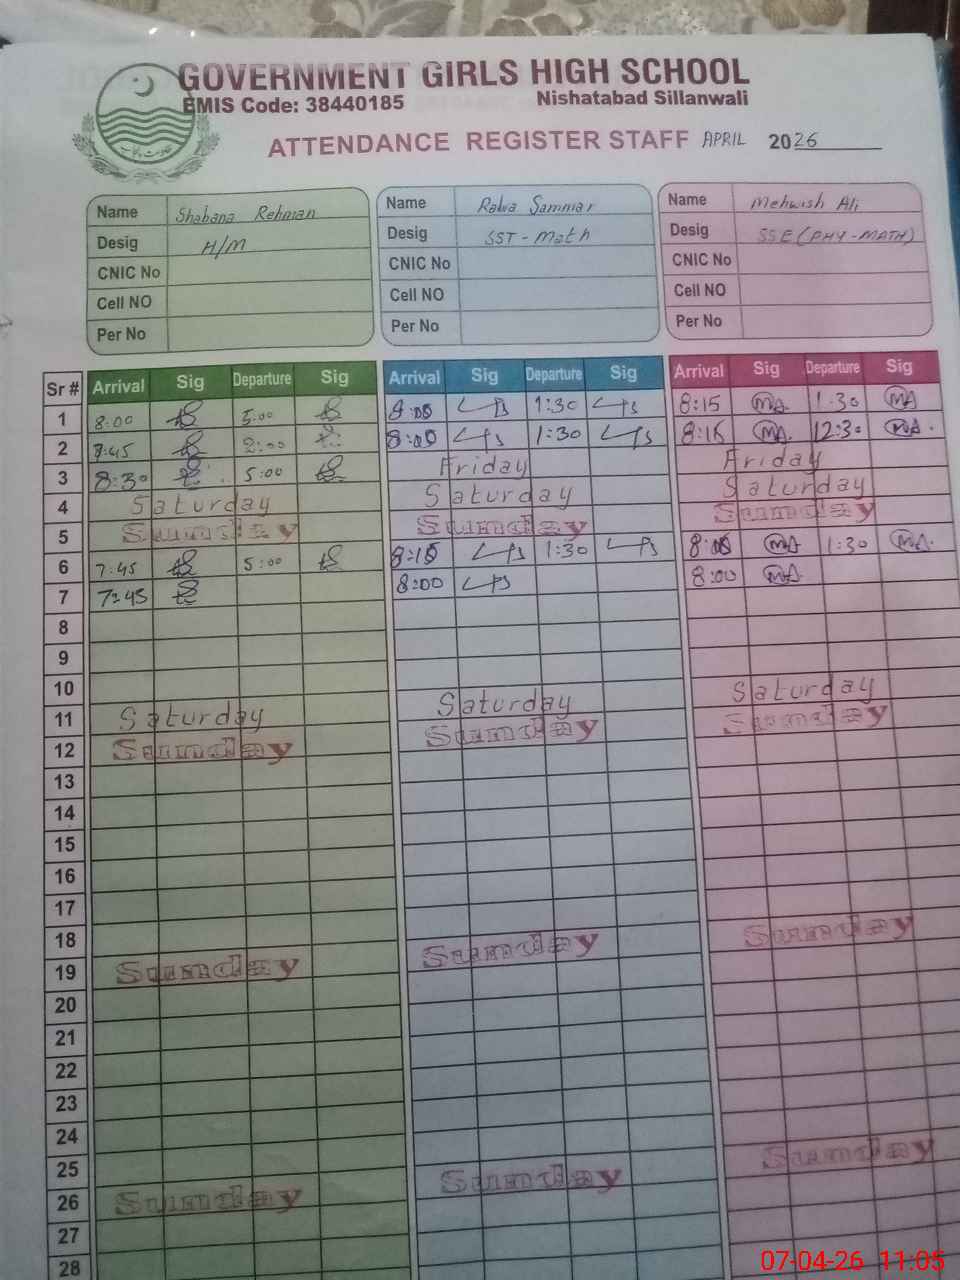 GOVERNMENT GIRLS HIGH SCHOOL
EMIS Code: 38440185 Nishatabad Sillanwali
ATTENDANCE REGISTER STAFF APRIL 2026
Name Shabana Rehman Name Name Mehwish Ali
Desig H/M Desig SST-Math Desig SSE(PHY-MATH)
CNIC No CNIC No CNIC No
Cell NO Cell NO Cell NO
Per No Per No Per No
Sr # Arrival Sig Departure Sig Arrival Sig Departure Sig Arrival Sig Departure Sig
1 8:00 5:00 1:30 8:15 MA 1:30 MA
2 7:45 2:00 8:00 1:30 8:15 MA 12:30 MA
3 8:30 5:00 Friday Friday
4 Saturday Saturday Saturday
5 Sunday Sunday Sunday
6 7:45 5:00 8:15 1:30 MA 1:30 MA
7 7:45 8:00 8:00 MA
8
9
10
11 Saturday Saturday Saturday
12 Sunday Sunday Sunday
13
14
15
16
17
18
19 Sunday Sunday Sunday
20
21
22
23
24
25
26 Sunday Sunday Sunday
27
28
07-04-26 11:05